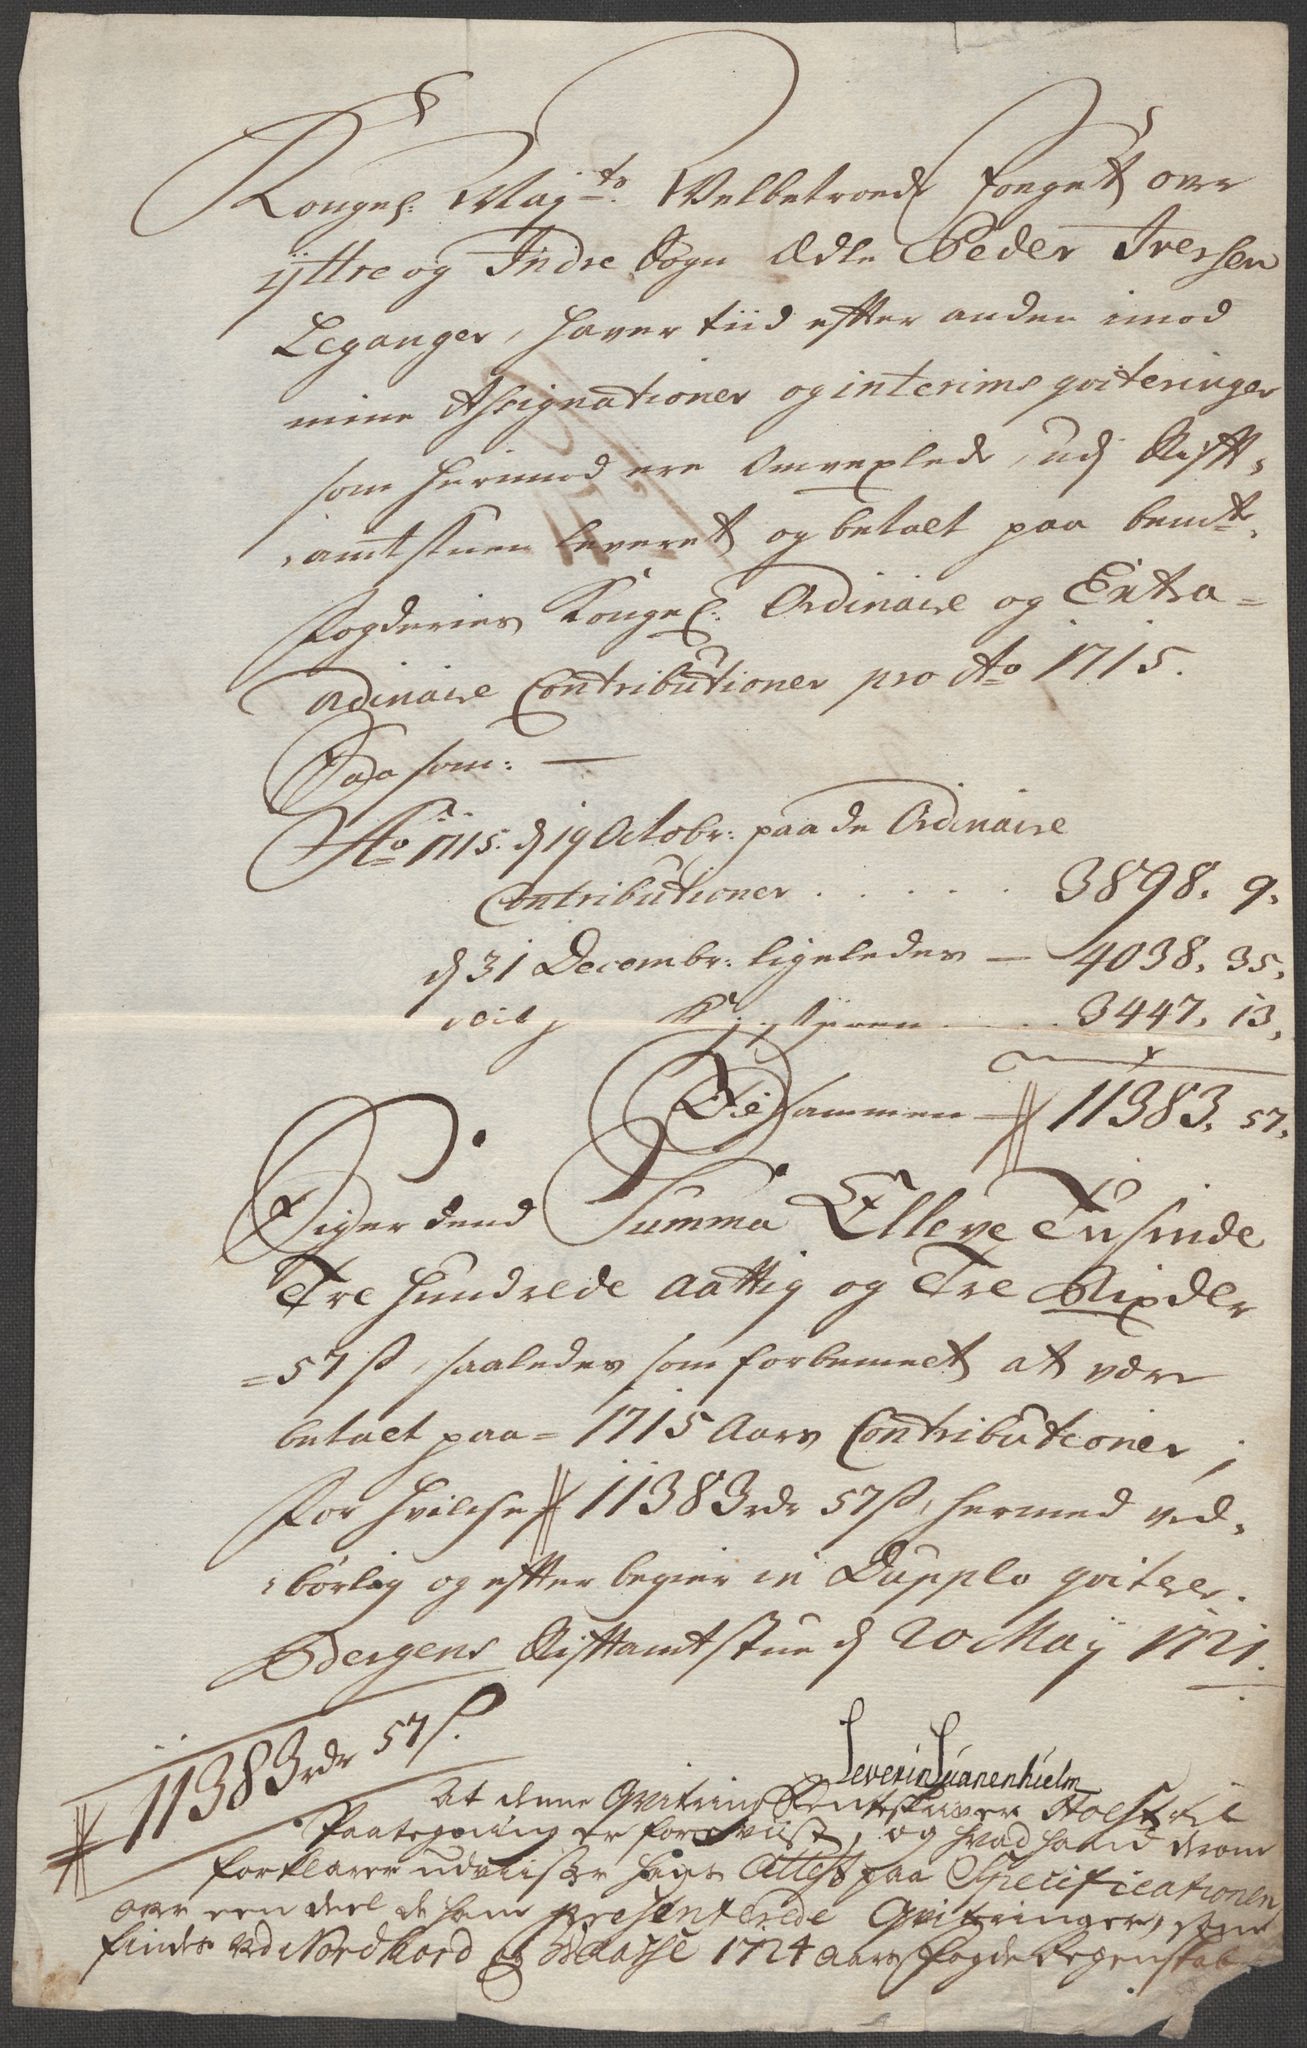 Kongel: May.ts Velbetroede foeget over
ÿttre og Indre Sogn Ædle Peder Iversen
Leganger, haver tiid effter anden imod
mine Assignationer og interims qviteringer
som hermod ere omvexlede, udj Stifft-
amtstuen leveret og betalt paa bemte.
fogderies Kongel: Ordinaire og Extra-
ordinaire Contributioner pro Ao 1715.
Saasom: —
Ao 1715. d 19 Octobr: paa de Ordinaire
Contributioner . . . . . 3898. 9.
d 31 Decembr: ligeledes — 4038. 35.
3447. 13.
Tilsammen — 11383. 57.
Siger dend Summa Elleve Tusinde
Tre hundrede aattig og Tre Rixdlr
57 ß, saaledes som forbemelt at være
betalt paa 1715 Aars Contributioner,
for hvilche 11383 rdr 57 ß, hermed ved-
børlig og effter begier in Dupplo qviterer.
Bergens Stifftamtstue d 20 Maÿ 1721.
Severin Suanenhielm
11383 rdr 57 ß.
At denne Qvitering Renteskriver til
Paategning er foreviist, og hvad hand derom
forklarer udviiser hans Attest paa Specificationen
over een deel de ham præsenterede Qvitringer, som
findes ved Nordhord og Waasse 1724 aars fogde Regenskab